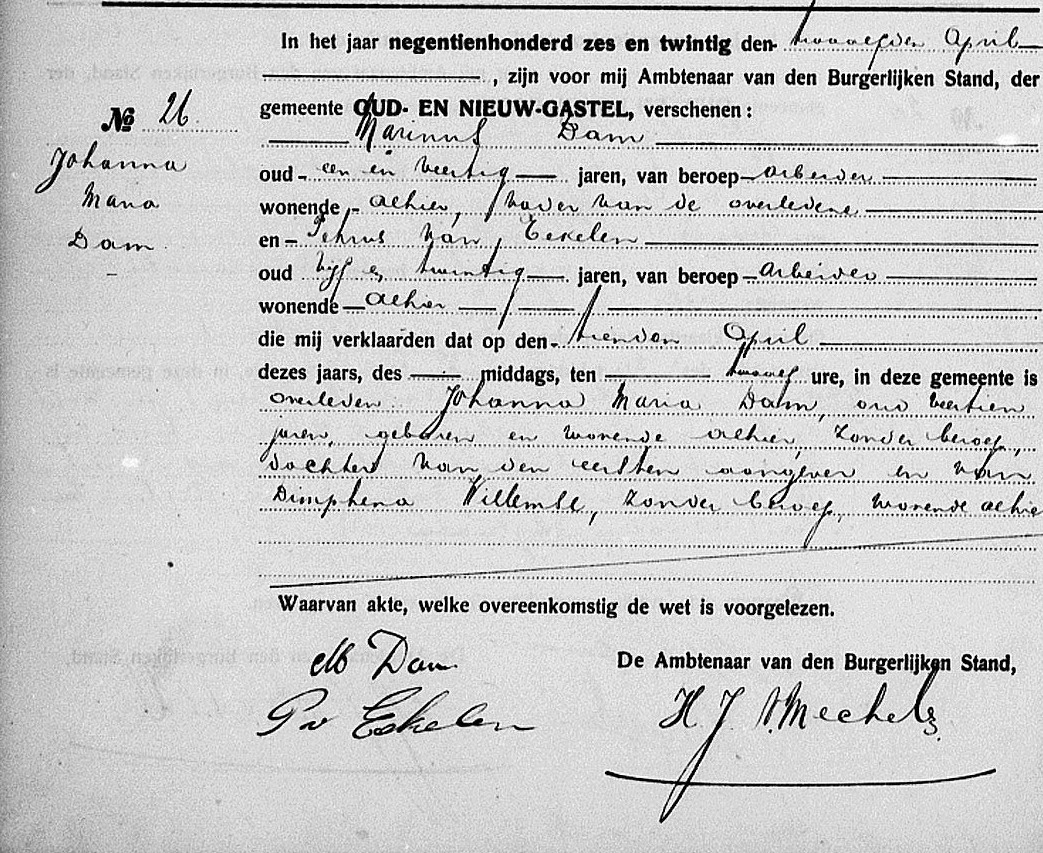 In het jaar negentienhonderd zes en twintig den twaalfden April
, zijn voor mij Ambtenaar van den Burgerlijken Stand, der
gemeente OUD- EN NIEUW-GASTEL, verschenen :
Marinus Dam
oud een en veertig jaren, van beroep arbeider
wonende alhier, vader van de overledene
en Petrus van Eekelen
oud vijf en twintig jaren, van beroep arbeider
wonende alhier
die mij verklaarden dat op den tienden April
dezes jaars, des middags, ten twaalf ure, in deze gemeente is
overleden Johanna Maria Dam, oud veertien
jaren, geboren en wonende alhier, zonder beroep,
dochter van den eersten aangever en van
Dimphena Willemse, zonder beroep, wonende alhie
Waarvan akte, welke overeenkomstig de wet is voorgelezen.
De Ambtenaar van den Burgerlijken Stand,
M Dam
P v Eekelen
H J v Mechels
No 26
Johanna
Maria
Dam